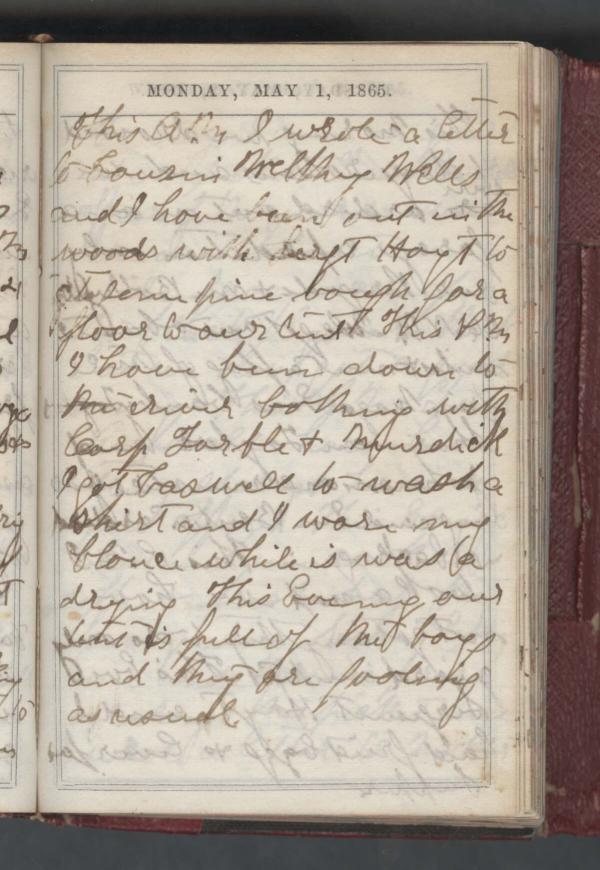 MONDAY, MAY 1, 1865.
This A.M. I wrote a letter
to Cousin Welthy Wells
and I have been out in the
woods with Sergt Hoyt to
get some pine bough for a
floor to our tent This P.M.
I have been down to
the river bathing with
Corp Tarble & Murdick
I got Caswell to wash a
shirt and I wore my
blouce while is was a
drying This Evening our
tent is full of the boys
and they are fooling
as usual